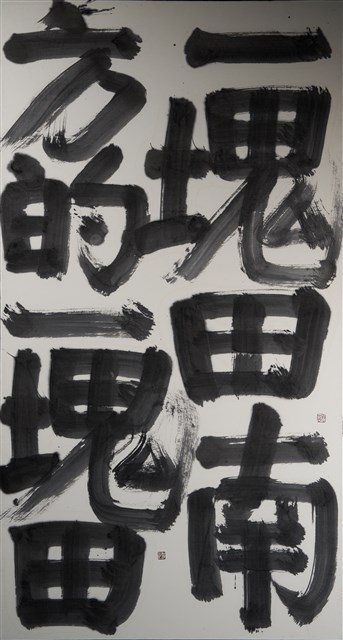 一塊田南
方的一塊田